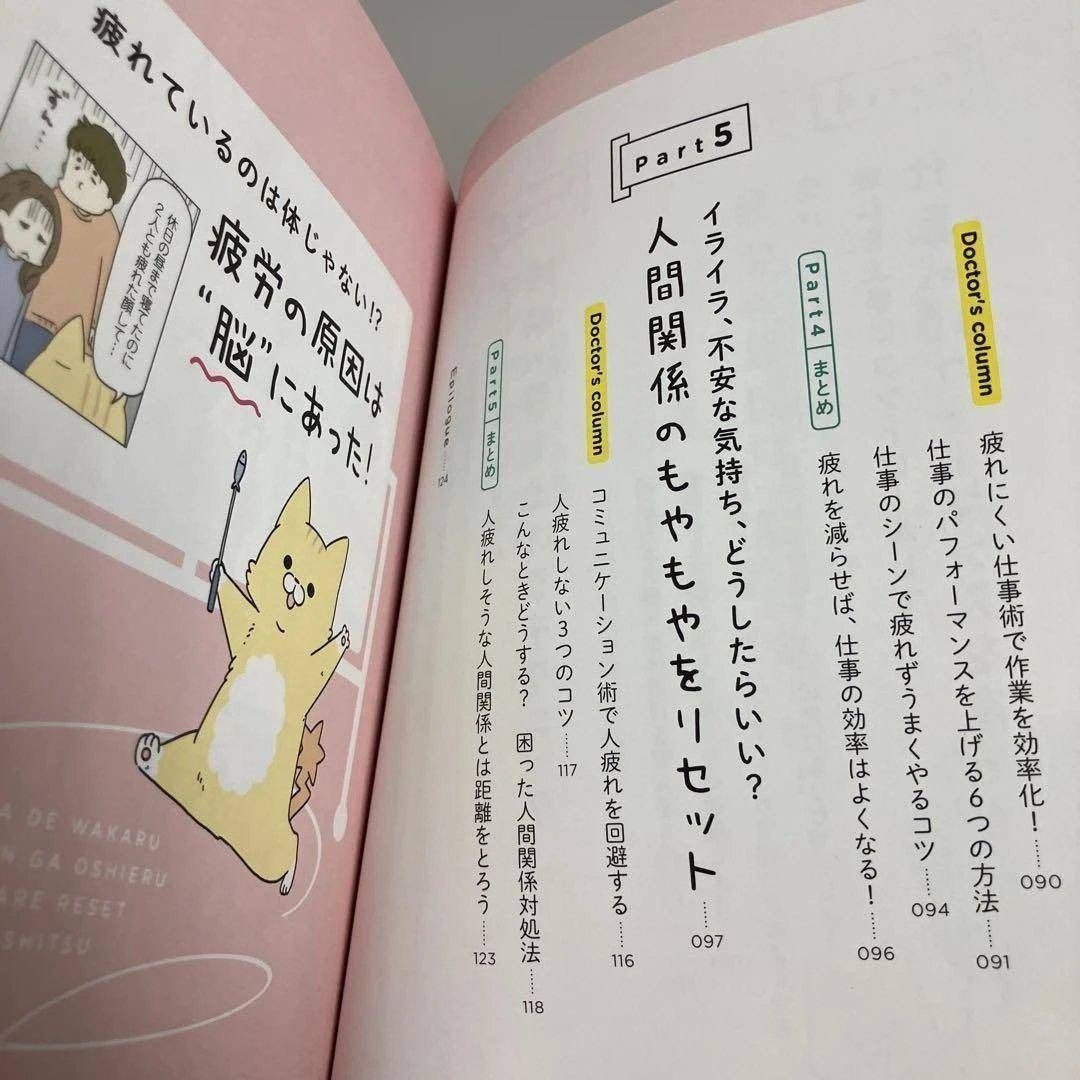 Doctor's column
疲れにくい仕事術で作業を効率化！……090
仕事のパフォーマンスを上げる6つの方法……091
仕事のシーンで疲れずうまくやるコツ……094
Part4 まとめ
疲れを減らせば、仕事の効率はよくなる！……096
Part5
イライラ、不安な気持ち、どうしたらいい？
人間関係のもやもやをリセット……097
Doctor's column
コミュニケーション術で人疲れを回避する……116
人疲れしない3つのコツ……117
こんなときどうする？ 困った人間関係対処法……118
Part5 まとめ
人疲れしそうな人間関係とは距離をとろう……123
Epilogue……124
疲れているのは体じゃない!?
疲労の原因は
“脳”にあった！
ずん…
休日の昼まで寝てたのに
2人とも疲れた顔して…
A DE WAKARU
N GA OSHIERU
ARE RESET
SHITSU